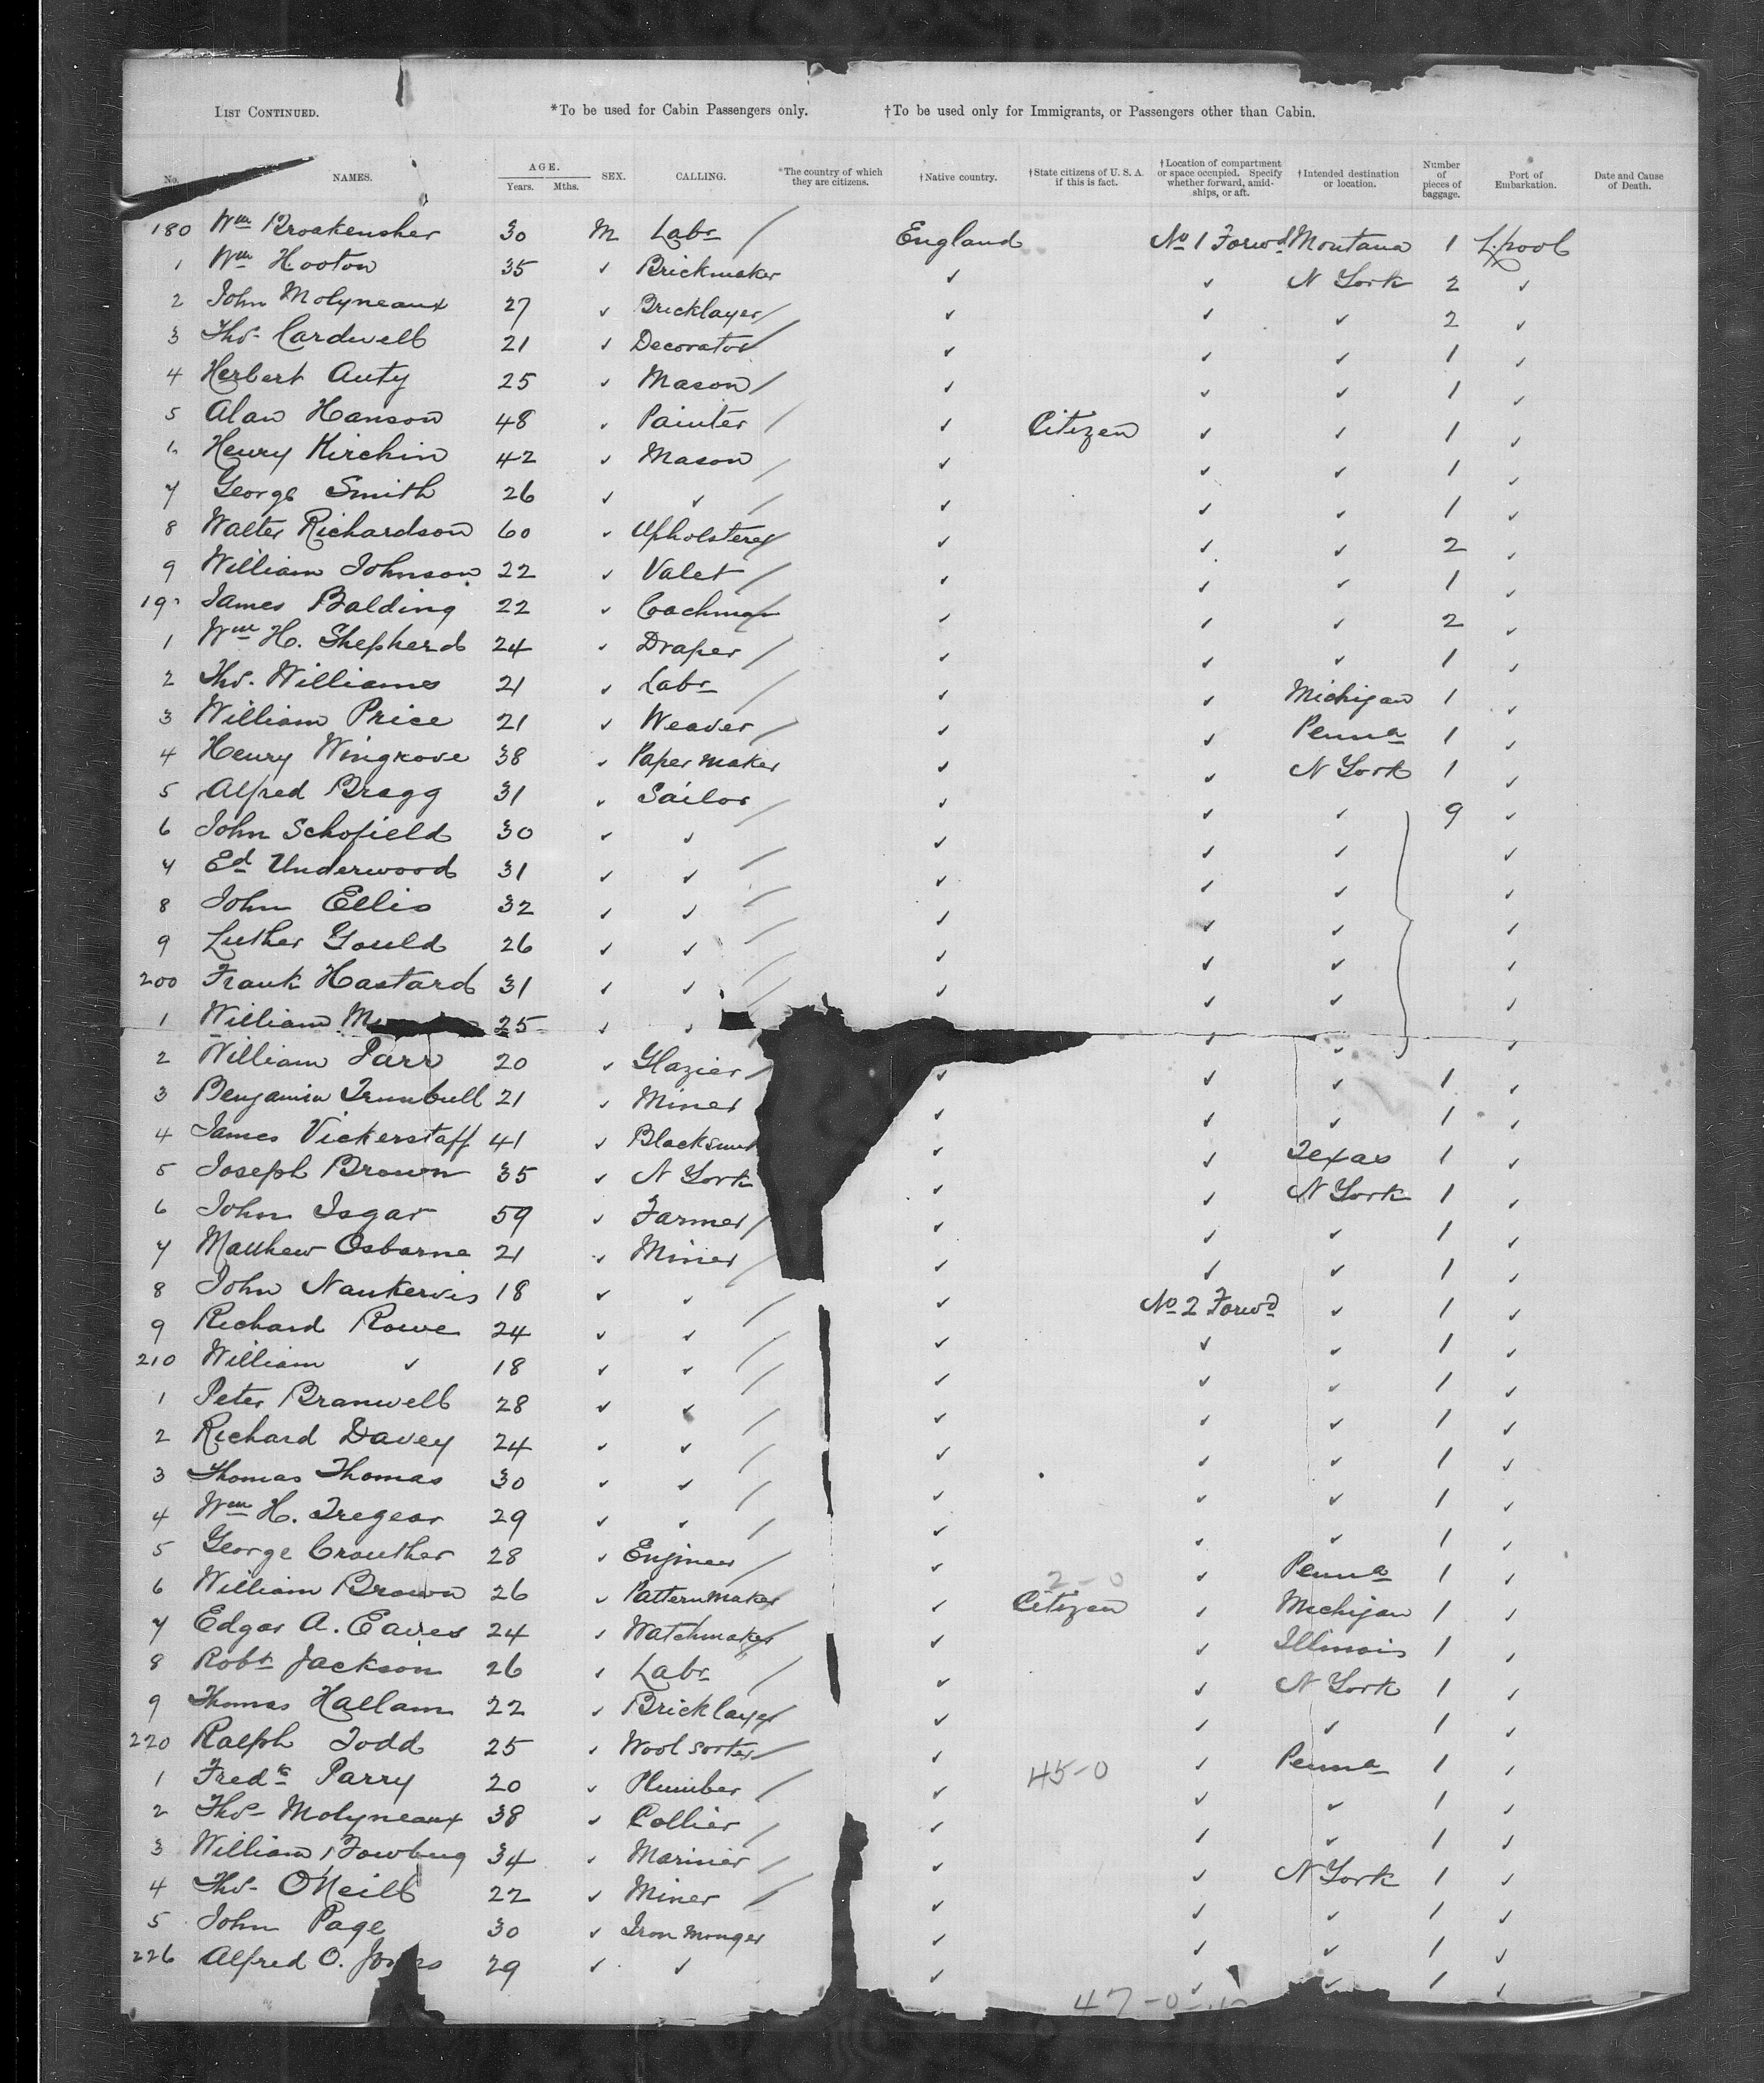 LIST CONTINUED. *To be used for Cabin Passengers only. †To be used only for Immigrants, or Passengers other than Cabin.
No. NAMES. AGE. Years. Mths. SEX. CALLING. *The country of which they are citizens. †Native country. †State citizens of U. S. A. if this is fact. †Location of compartment or space occupied. Specify whether forward, amidships, or aft. †Intended destination or location. Number of pieces of baggage. Port of Embarkation. Date and Cause of Death.
180 Wm Brokensher 30 M Labr / England No 1 Forwd Montana 1 L.pool
1 Wm Hooton 35 ✓ Brickmaker ✓ ✓ N York 2 ✓
2 John Molyneaux 27 ✓ Bricklayer / ✓ ✓ ✓ 2 ✓
3 Thos. Cardwell 21 ✓ Decorator / ✓ ✓ ✓ 1 ✓
4 Herbert Auty 25 ✓ Mason / ✓ ✓ ✓ 1 ✓
5 Alan Hanson 48 ✓ Painter / ✓ Citizen ✓ ✓ 1 ✓
6 Henry Kirchin 42 ✓ Mason / ✓ ✓ ✓ 1 ✓
7 George Smith 26 ✓ ✓ / ✓ ✓ ✓ 1 ✓
8 Walter Richardson 60 ✓ Upholsterer / ✓ ✓ ✓ 2 ✓
9 William Johnson 22 ✓ Valet / ✓ ✓ ✓ 1 ✓
190 James Balding 22 ✓ Coachman / ✓ ✓ ✓ 2 ✓
1 Wm H. Shepherd 24 ✓ Draper / ✓ ✓ ✓ 1 ✓
2 Thos. Williams 21 ✓ Labr / ✓ ✓ Michigan 1 ✓
3 William Price 21 ✓ Weaver / ✓ ✓ Penna 1 ✓
4 Henry Wingrove 38 ✓ Paper maker ✓ ✓ N York 1 ✓
5 Alfred Bragg 31 ✓ Sailor / ✓ ✓ ✓ 9 ✓
6 John Schofield 30 ✓ ✓ / ✓ ✓ ✓ ✓
7 Ed Underwood 31 ✓ ✓ / ✓ ✓ ✓ ✓
8 John Ellis 32 ✓ ✓ / ✓ ✓ ✓ ✓
9 Luther Gould 26 ✓ ✓ / ✓ ✓ ✓ ✓
200 Frank Hastard 31 ✓ ✓ / ✓ ✓ ✓ ✓
1 William 25 ✓ ✓ ✓ ✓ ✓
2 William Parr 20 ✓ Glazier / ✓ ✓ ✓ 1 ✓
3 Benjamin Trumbull 21 ✓ Miner ✓ ✓ ✓ 1 ✓
4 James Vickerstaff 41 ✓ Blacksm ✓ ✓ Texas 1 ✓
5 Joseph Brown 35 ✓ N York ✓ ✓ N York 1 ✓
6 John Isgar 59 ✓ Farmer / ✓ ✓ ✓ 1 ✓
7 Matthew Osborne 21 ✓ Miner / ✓ ✓ ✓ 1 ✓
8 John Nankervis 18 ✓ ✓ / ✓ No 2 Forwd ✓ 1 ✓
9 Richard Rowe 24 ✓ ✓ / ✓ ✓ ✓ 1 ✓
210 William ✓ 18 ✓ ✓ / ✓ ✓ ✓ 1 ✓
1 Peter Branwell 28 ✓ ✓ / ✓ ✓ ✓ 1 ✓
2 Richard Davey 24 ✓ ✓ / ✓ ✓ ✓ 1 ✓
3 Thomas Thomas 30 ✓ ✓ / ✓ ✓ ✓ 1 ✓
4 Wm H. Tregear 29 ✓ ✓ / ✓ ✓ ✓ 1 ✓
5 George Crouther 28 ✓ Engineer / ✓ 2-0 ✓ Penna 1 ✓
6 William Brown 26 ✓ Patternmaker ✓ Citizen ✓ Michigan 1 ✓
7 Edgar A. Eaves 24 ✓ Watchmaker / ✓ ✓ Illinois 1 ✓
8 Robt Jackson 26 ✓ Labr / ✓ ✓ N York 1 ✓
9 Thomas Hallam 22 ✓ Bricklayer / ✓ ✓ ✓ 1 ✓
220 Ralph Todd 25 ✓ Wool sorter / ✓ ✓ Penna 1 ✓
1 Fredk Parry 20 ✓ Plumber / ✓ 45-0 ✓ ✓ 1 ✓
2 Thos Molyneaux 38 ✓ Collier / ✓ ✓ ✓ 1 ✓
3 William 34 ✓ Mariner / ✓ ✓ N York 1 ✓
4 Thos. O'Neill 22 ✓ Miner / ✓ ✓ ✓ 1 ✓
5 John Page 30 ✓ Iron monger ✓ ✓ ✓ 1 ✓
226 Alfred O. 29 ✓ ✓ ✓ ✓ ✓ 1 ✓
47-0